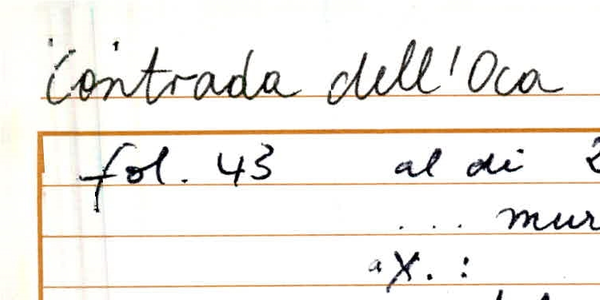 Contrada dell'Oca
fol. 43 al di 2
... mur
X. :